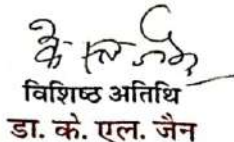 विशिष्ठ अतिथि
डा. के. एल. जैन